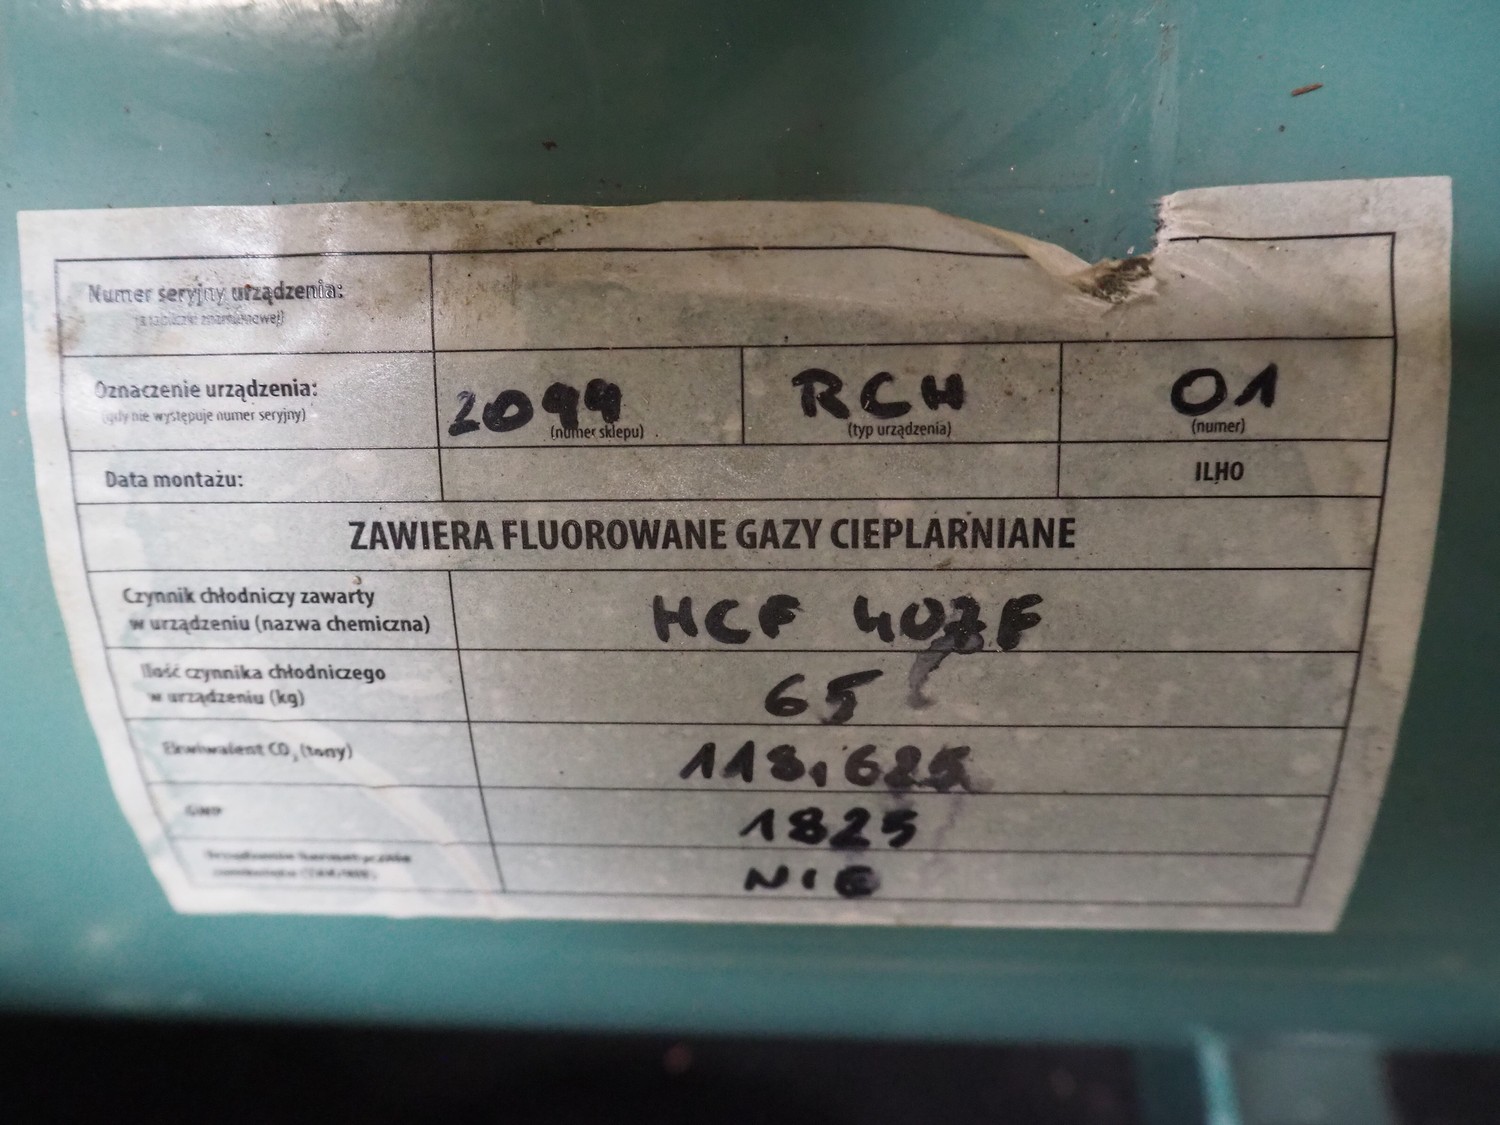 Numer seryjny urządzenia:
(z tabliczki znamionowej)
Oznaczenie urządzenia:
(gdy nie występuje numer seryjny)
2099
(numer sklepu)
RCH
(typ urządzenia)
01
(numer)
Data montażu:
ILHO
ZAWIERA FLUOROWANE GAZY CIEPLARNIANE
Czynnik chłodniczy zawarty
w urządzeniu (nazwa chemiczna)
HCF 407F
Ilość czynnika chłodniczego
w urządzeniu (kg)
65
Ekwiwalent CO₂ (tony)
118,625
GWP
1825
Urządzenie hermetycznie
zamknięte (TAK/NIE)
NIE